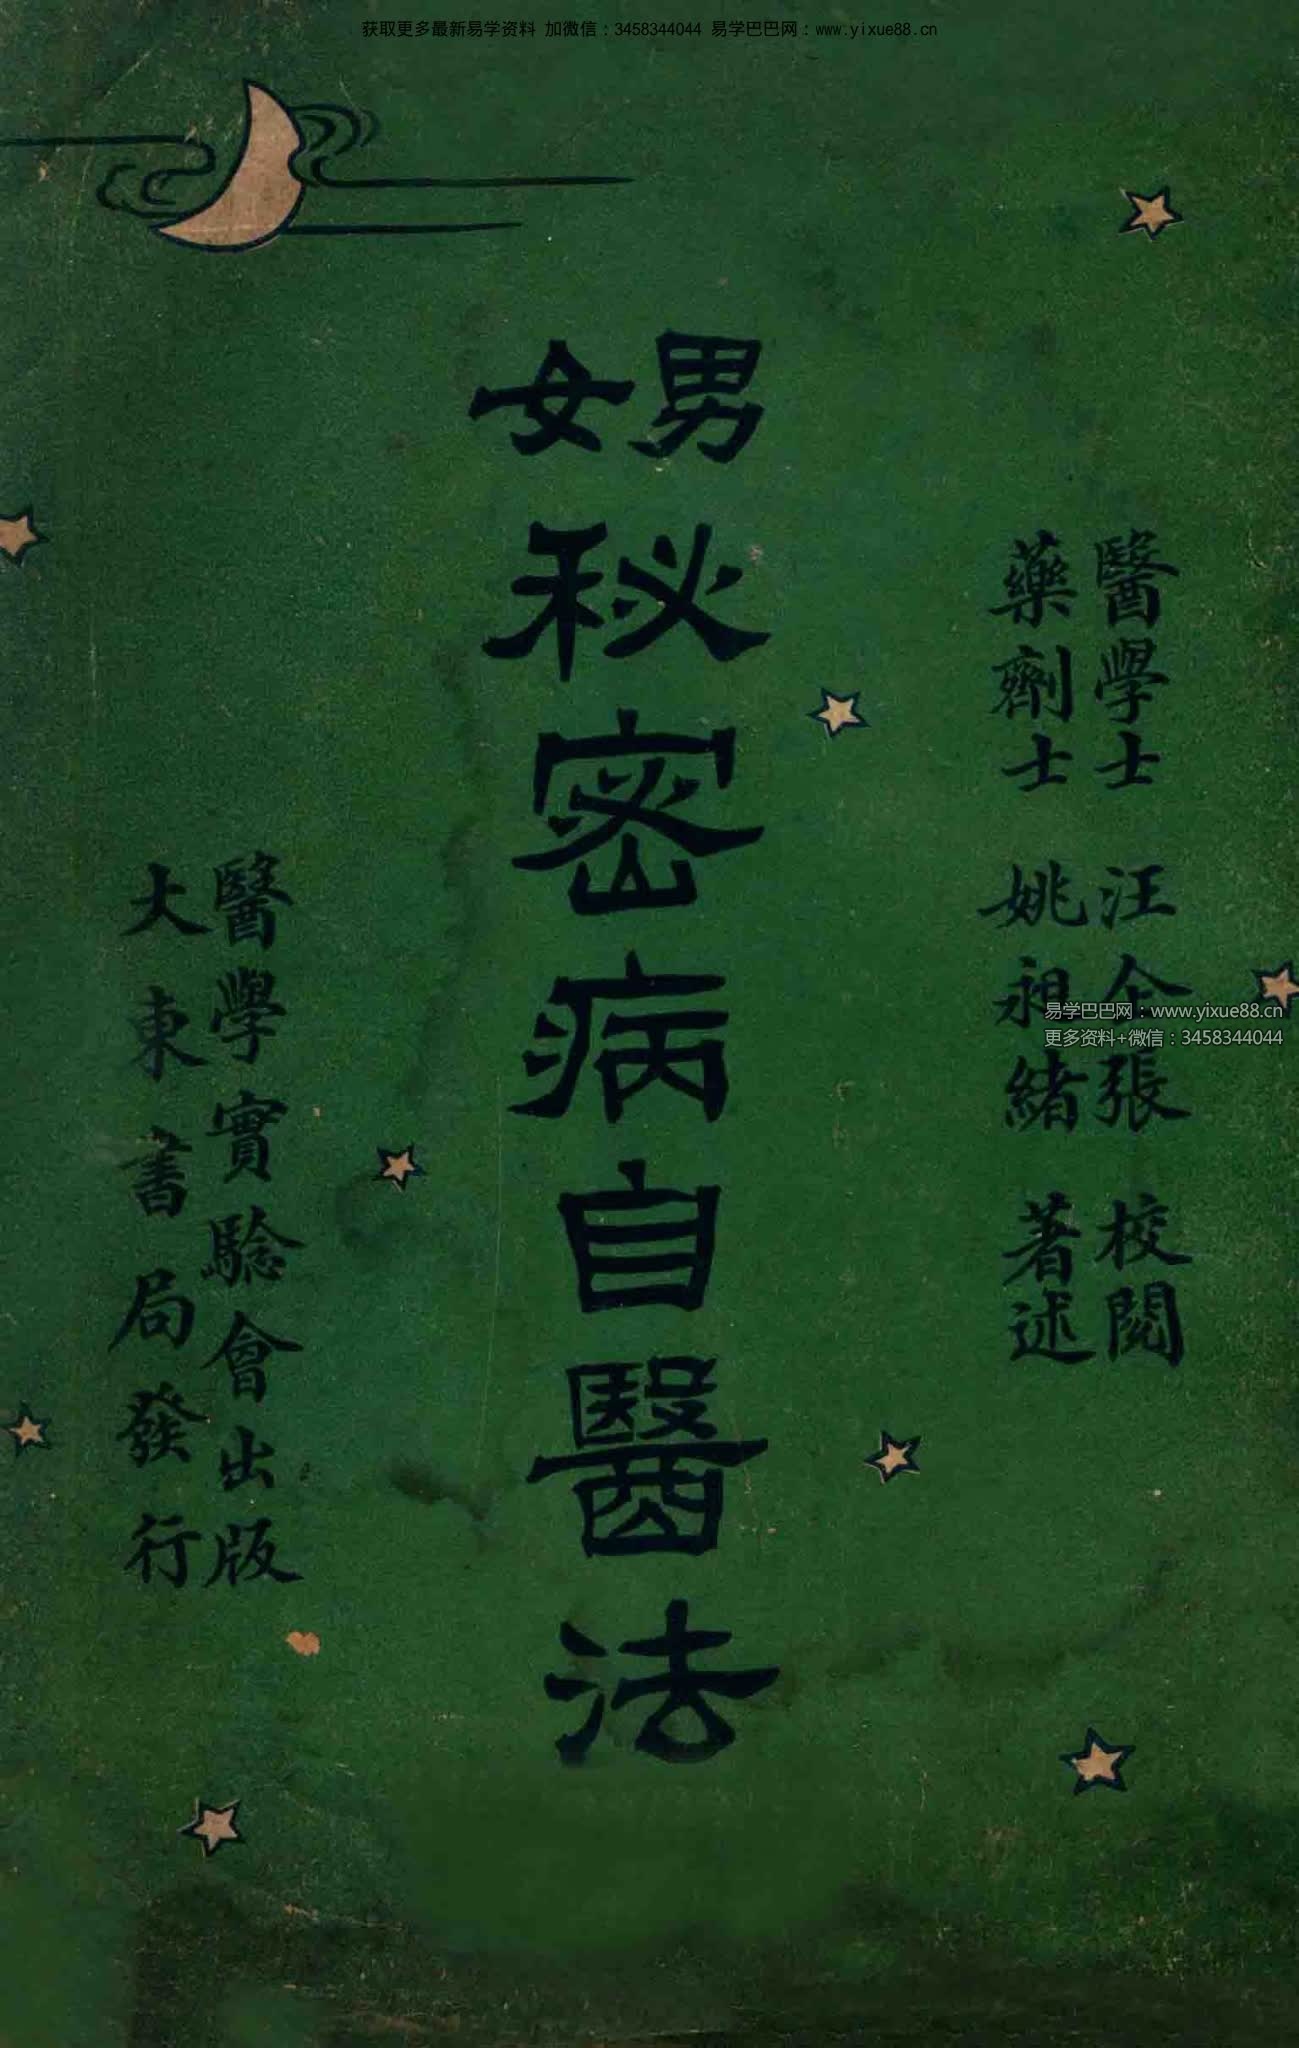 获取更多最新易学资料 加微信：3458344044 易学巴巴网：www.yixue88.cn
醫學士 汪企張 校閱
藥劑士 姚昶緒 著述
男女
秘密病自醫法
醫學實驗會出版
大東書局發行
易学巴巴网：www.yixue88.cn
更多资料+微信：3458344044